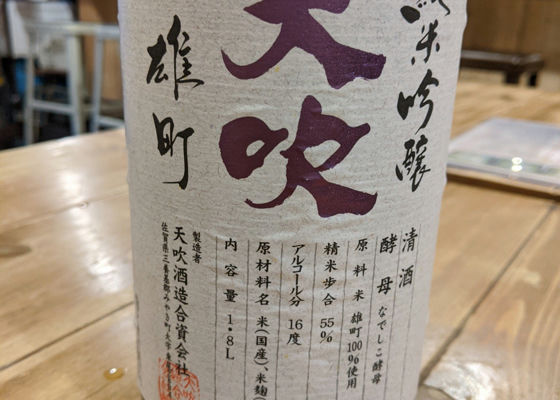 純米吟醸
天吹
雄町
清酒
酵母 なでしこ酵母
原料米 雄町100%使用
精米歩合 55%
アルコール分 16度
原材料名 米(国産)、米麹
内容量 1.8L
製造者
天吹酒造合資会社
佐賀県三養基郡みやき町大字東